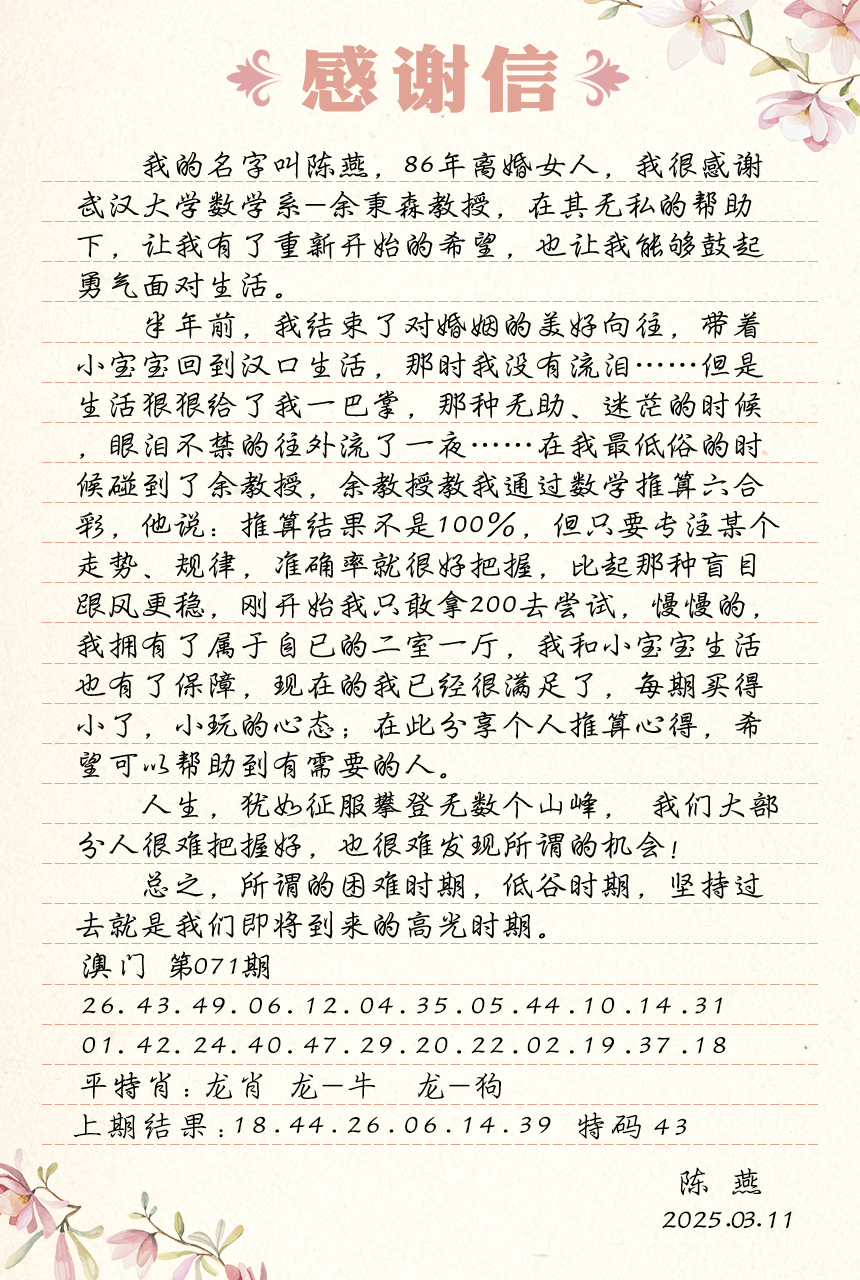 感谢信
我的名字叫陈燕，86年离婚女人，我很感谢
武汉大学数学系—余秉森教授，在其无私的帮助
下，让我有了重新开始的希望，也让我能够鼓起
勇气面对生活。
半年前，我结束了对婚姻的美好向往，带着
小宝宝回到汉口生活，那时我没有流泪……但是
生活狠狠给了我一巴掌，那种无助、迷茫的时候
，眼泪不禁的往外流了一夜……在我最低俗的时
候碰到了余教授，余教授教我通过数学推算六合
彩，他说：推算结果不是100%，但只要专注某个
走势、规律，准确率就很好把握，比起那种盲目
跟风更稳，刚开始我只敢拿200去尝试，慢慢的，
我拥有了属于自己的二室一厅，我和小宝宝生活
也有了保障，现在的我已经很满足了，每期买得
小了，小玩的心态；在此分享个人推算心得，希
望可以帮助到有需要的人。
人生，犹如征服攀登无数个山峰， 我们大部
分人很难把握好，也很难发现所谓的机会！
总之，所谓的困难时期，低谷时期，坚持过
去就是我们即将到来的高光时期。
澳门 第071期
26.43.49.06.12.04.35.05.44.10.14.31
01.42.24.40.47.29.20.22.02.19.37.18
平特肖：龙肖 龙—牛 龙—狗
上期结果：18.44.26.06.14.39 特码 43
陈 燕
2025.03.11